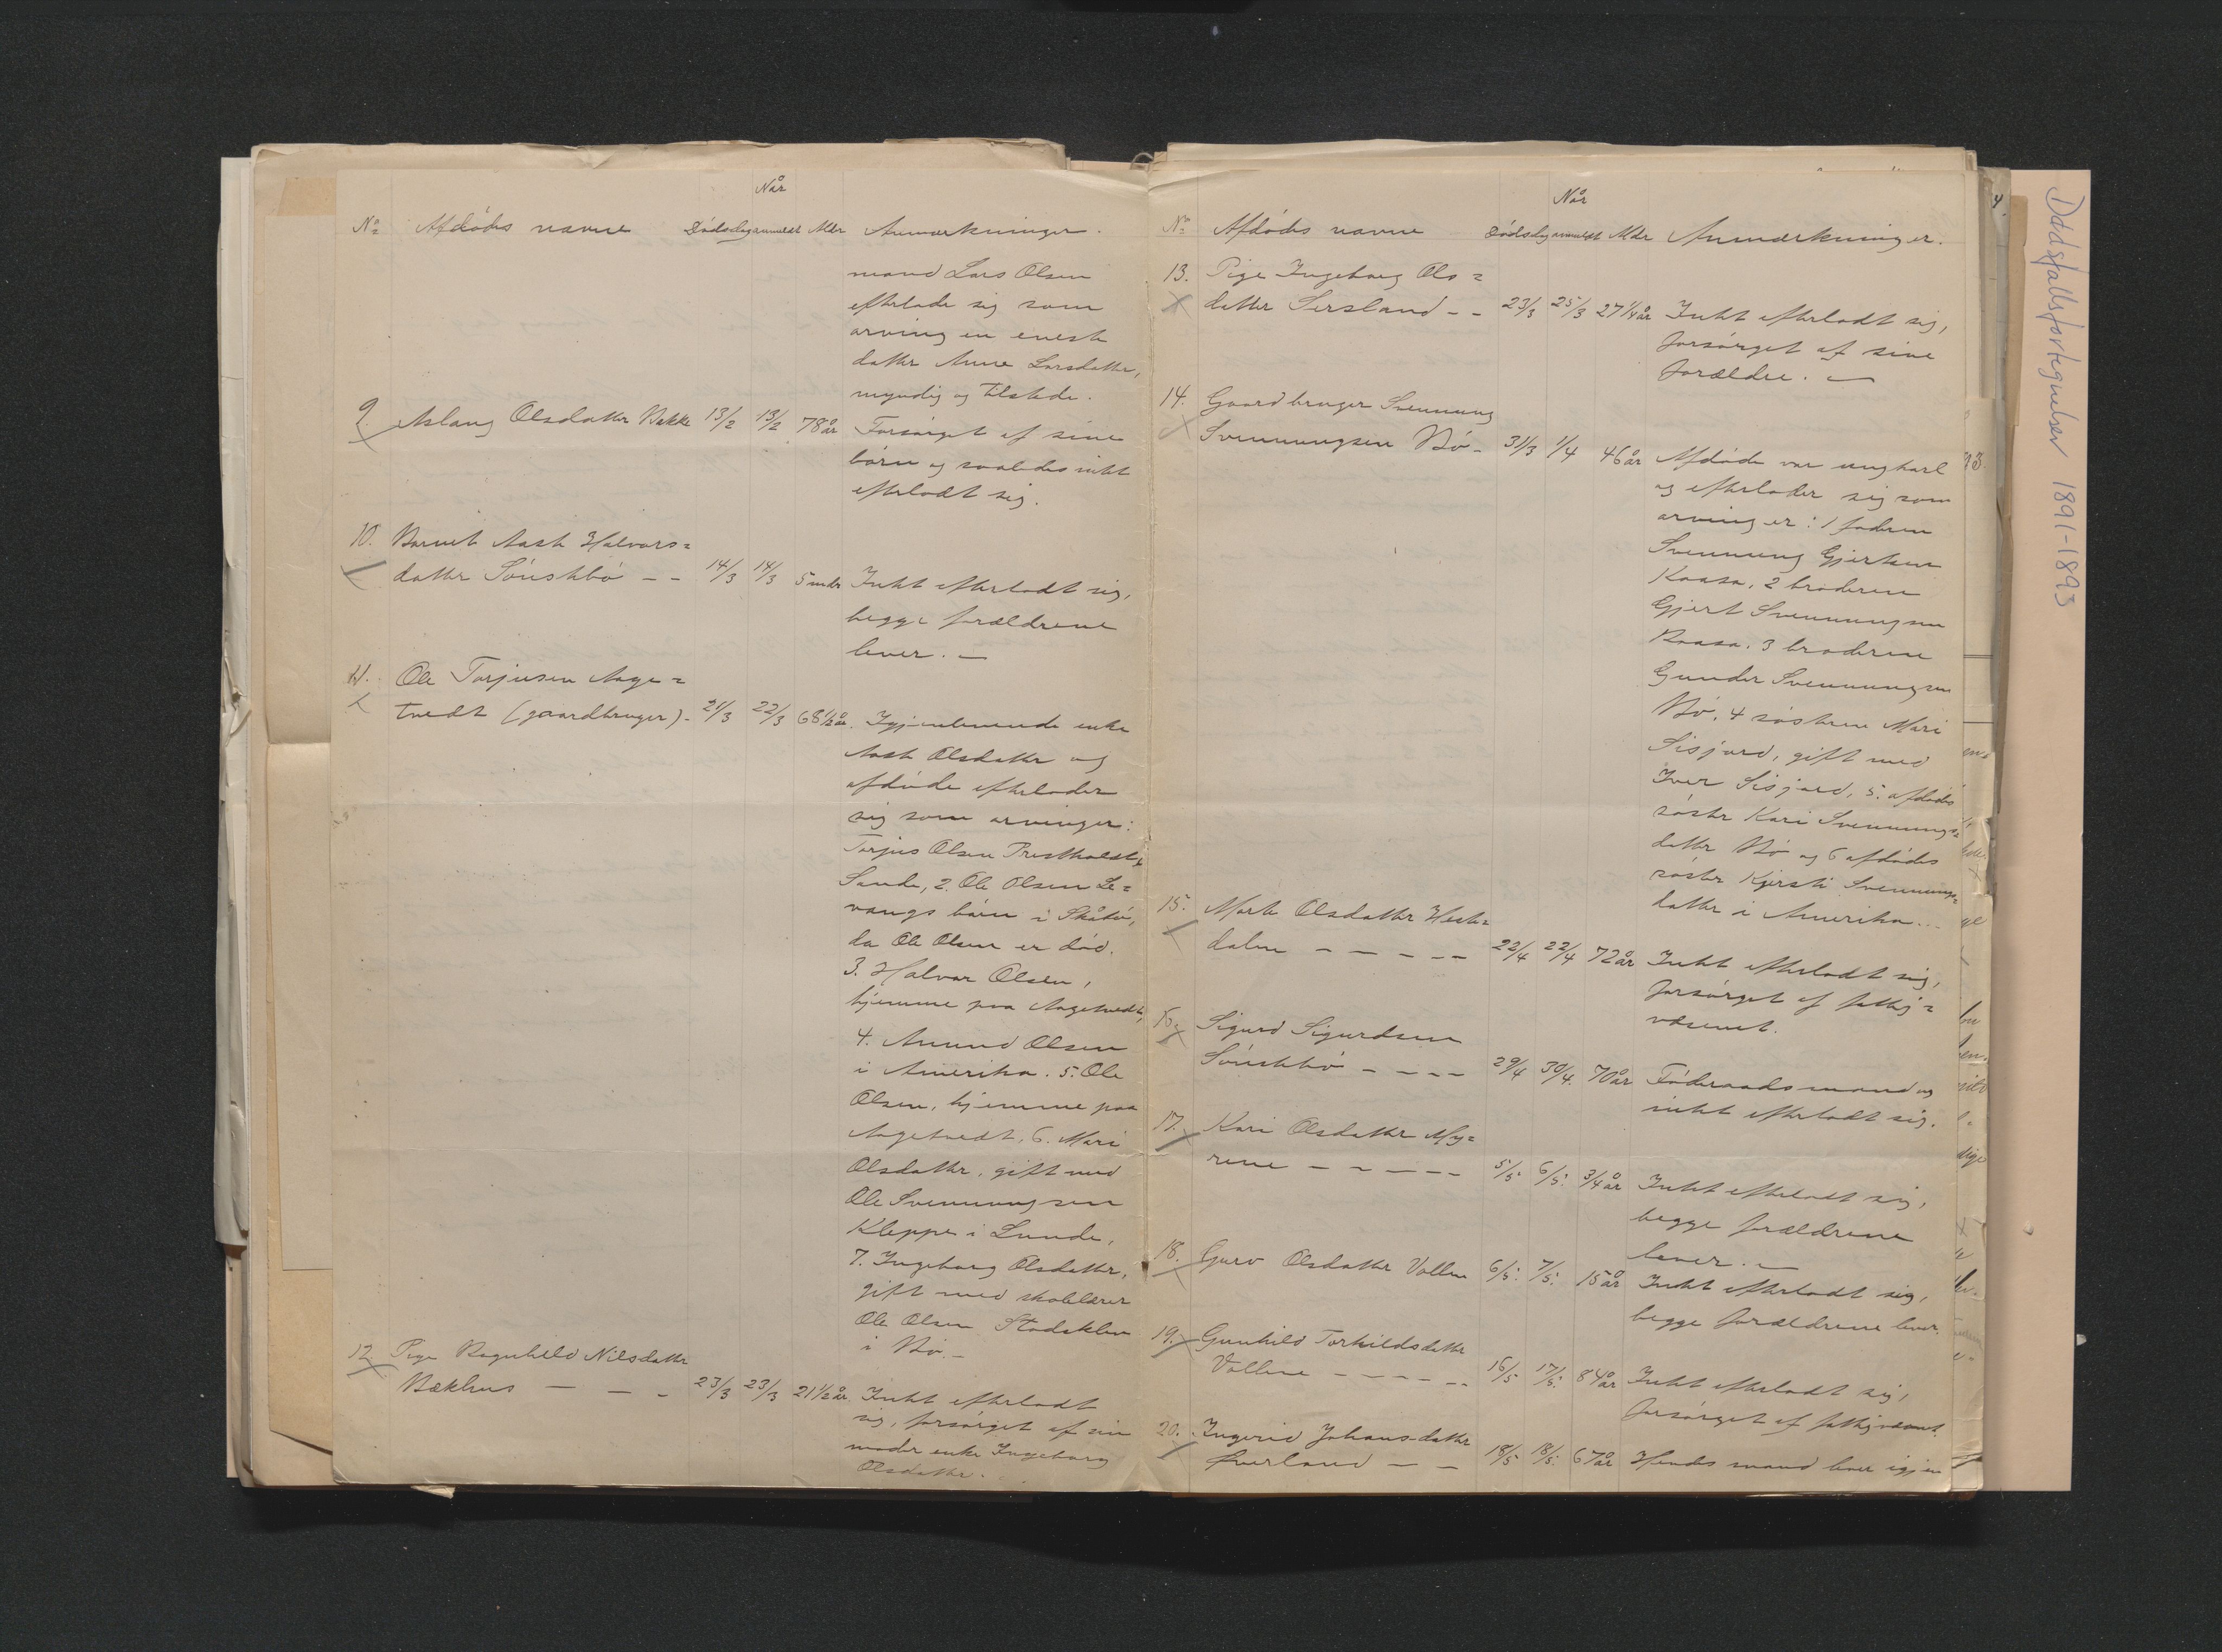 Når
No Afdödes navne Dödsdag anmeldt Alder Anmærkninger.
mand Lars Olsen
efterlade sig som
arving en eneste
datter Anne Larsdatter,
myndig og tilstede.
9. Aslaug Olsdatter Bakke 13/2 13/2 78 år Forsörget af sine
börn og saaledes intet
efterladt sig.
10. Barnet Aaste Halvors=
datter Sönstebö - - 14/3 14/3 5 mdr Intet efterladt sig,
begge forældrene
lever. -
11. Ole Torjusen Aage=
tvedt (gaardbruger) - 21/3 22/3 68 1/2 år. Igjenlevende enke
Aaste Olsdatter og
afdöde efterlader
sig som arvinger:
Torjus Olsen Prestholdt,
Sande, 2. Ole Olsen Le=
vangs börn i Skåtö,
da Ole Olsen er död.
3. Halvor Olsen,
hjemme paa Aagetvedt,
4. Amund Olsen
i Amerika. 5. Ole
Olsen, hjemme paa
Aagetvedt, 6. Mari
Olsdatter, gift med
Ole Svennungsen
Kleppe i Lunde,
7. Ingeborg Olsdatter,
gift med skolelærer
Ole Olsen Stadskleiv
i Bö. -
12. Pige Ragnhild Nilsdatter
Bækhus - - - 23/3 23/3 21 1/2 år. Intet efterladt
sig, forsörget af sin
moder enke Ingeborg
Olsdatter.
Når
No Afdödes navne Dödsdag anmeldt Alder Anmærkninger.
13. Pige Ingeborg Ols=
datter Sersland - - 23/3 25/3 27 1/4 år Intet efterladt sig,
forsörget af sine
forældre. -
14. Gaardbruger Svennung
Svennungsen Bö - 31/3 1/4 46 år Afdöde var ungkarl
og efterlader sig som
arvinger: 1 faderen
Svennung Gjertsen
Kaasa, 2 broderen
Gjert Svennungsen
Kaasa. 3 broderen
Gunder Svennungsen
Bö, 4 sösteren Mari
Sisjord, gift med
Iver Sisjord, 5. afdödes
söster Kari Svennungs=
datter Bö og 6 afdödes
söster Kjersti Svennungs=
datter i Amerika...
15. Marte Olsdatter Heste=
dalen - - - - - 22/4 22/4 72 år Intet efterladt sig,
forsörget af fattig=
væsenet.
16. Sigurd Sigurdsen
Sönstebö - - - - 29/4 30/4. 70 år Föderaadsmand og
intet efterladt sig.
17. Kari Olsdatter My=
rene - - - - - 5/5 6/5. 3/4 år Intet efterladt sig,
begge forældrene
lever. -
18. Guro Olsdatter Vollen 6/5. 7/5. 15 år Intet efterladt sig,
begge forældrene lever.
19. Gunhild Torkildsdatter
Vollene - - - - - 16/5 17/5. 84 år Intet efterladt sig,
forsörget af fattigvæsenet.
20. Ingerid Johansdatter
Överland - - 18/5 18/5. 67 år Hendes mand lever igjen
Dødsfallsfortegnelser 1891-1893